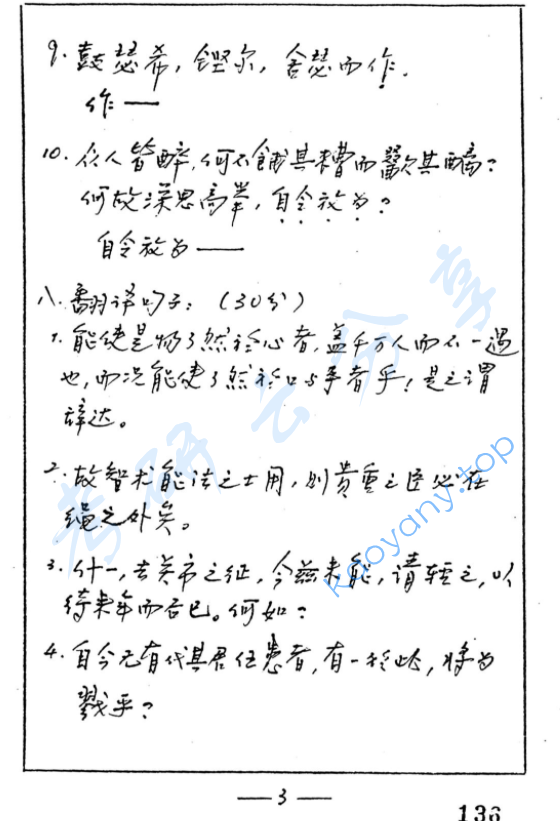 9. 鼓瑟希，铿尔，舍瑟而作。
作——
10. 众人皆醉，何不餔其糟而歠其醨？
何故深思高举，自令放为？
自令放为——
八、翻译句子：（30分）
1. 能使是物了然于心者，盖千万人而不一遇
也，而况能使了然于口与手者乎！是之谓
辞达。
2. 故智术能法之士用，则贵重之臣必在
绳之外矣。
3. 什一，去关市之征，今兹未能，请轻之，以
待来年而后已。何如？
4. 自今无有代其君任患者，有一于此，将为
戮乎？
— 3 —
136
考研云分享
kaoyany.top